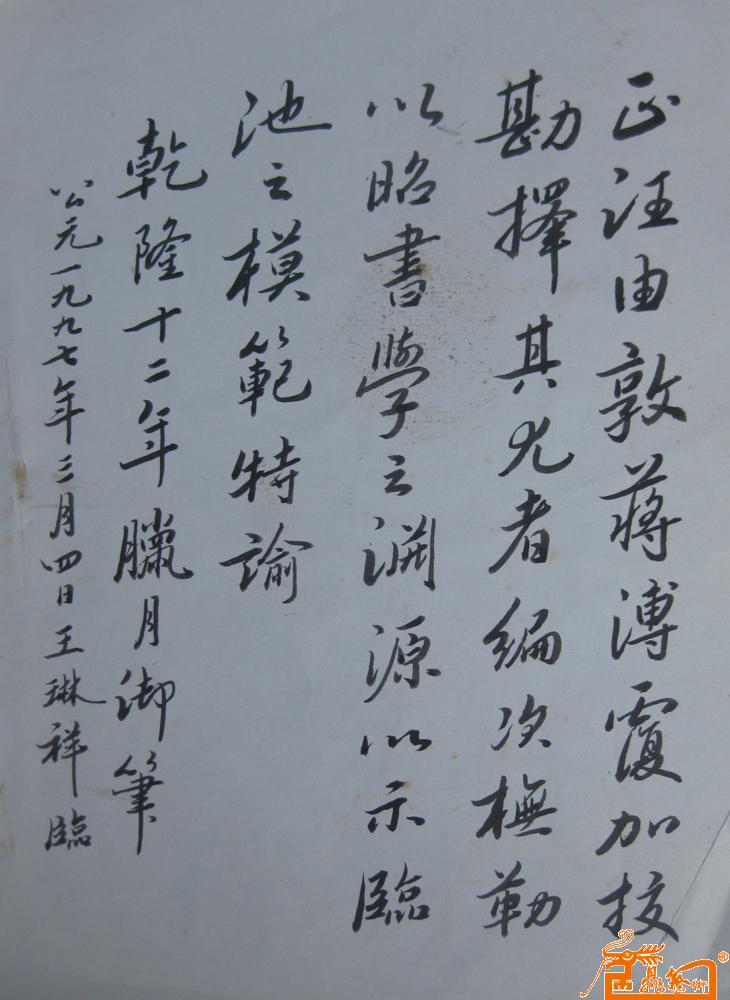 正汪由敦蔣溥覆加校
勘擇其尤者編次橅勒
以昭書學之淵源以示臨
池之模範特諭
乾隆十二年臘月御筆
公元一九九七年三月四日王琳祥臨